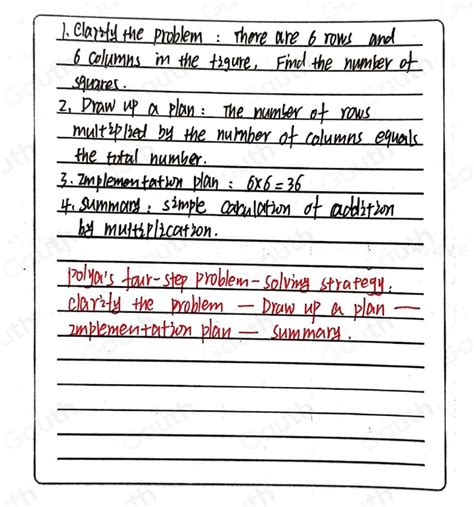 1. Clarify the problem : There are 6 rows and
6 columns in the figure, Find the number of
squares.
2. Draw up a plan : The number of rows
multiplied by the number of columns equals
the total number.
3. Implementation plan : 6x6=36
4. Summary : simple calculation of addition
by multiplication.
polya's four-step problem-solving strategy.
clarify the problem — Draw up a plan —
implementation plan — summary.
Gauth